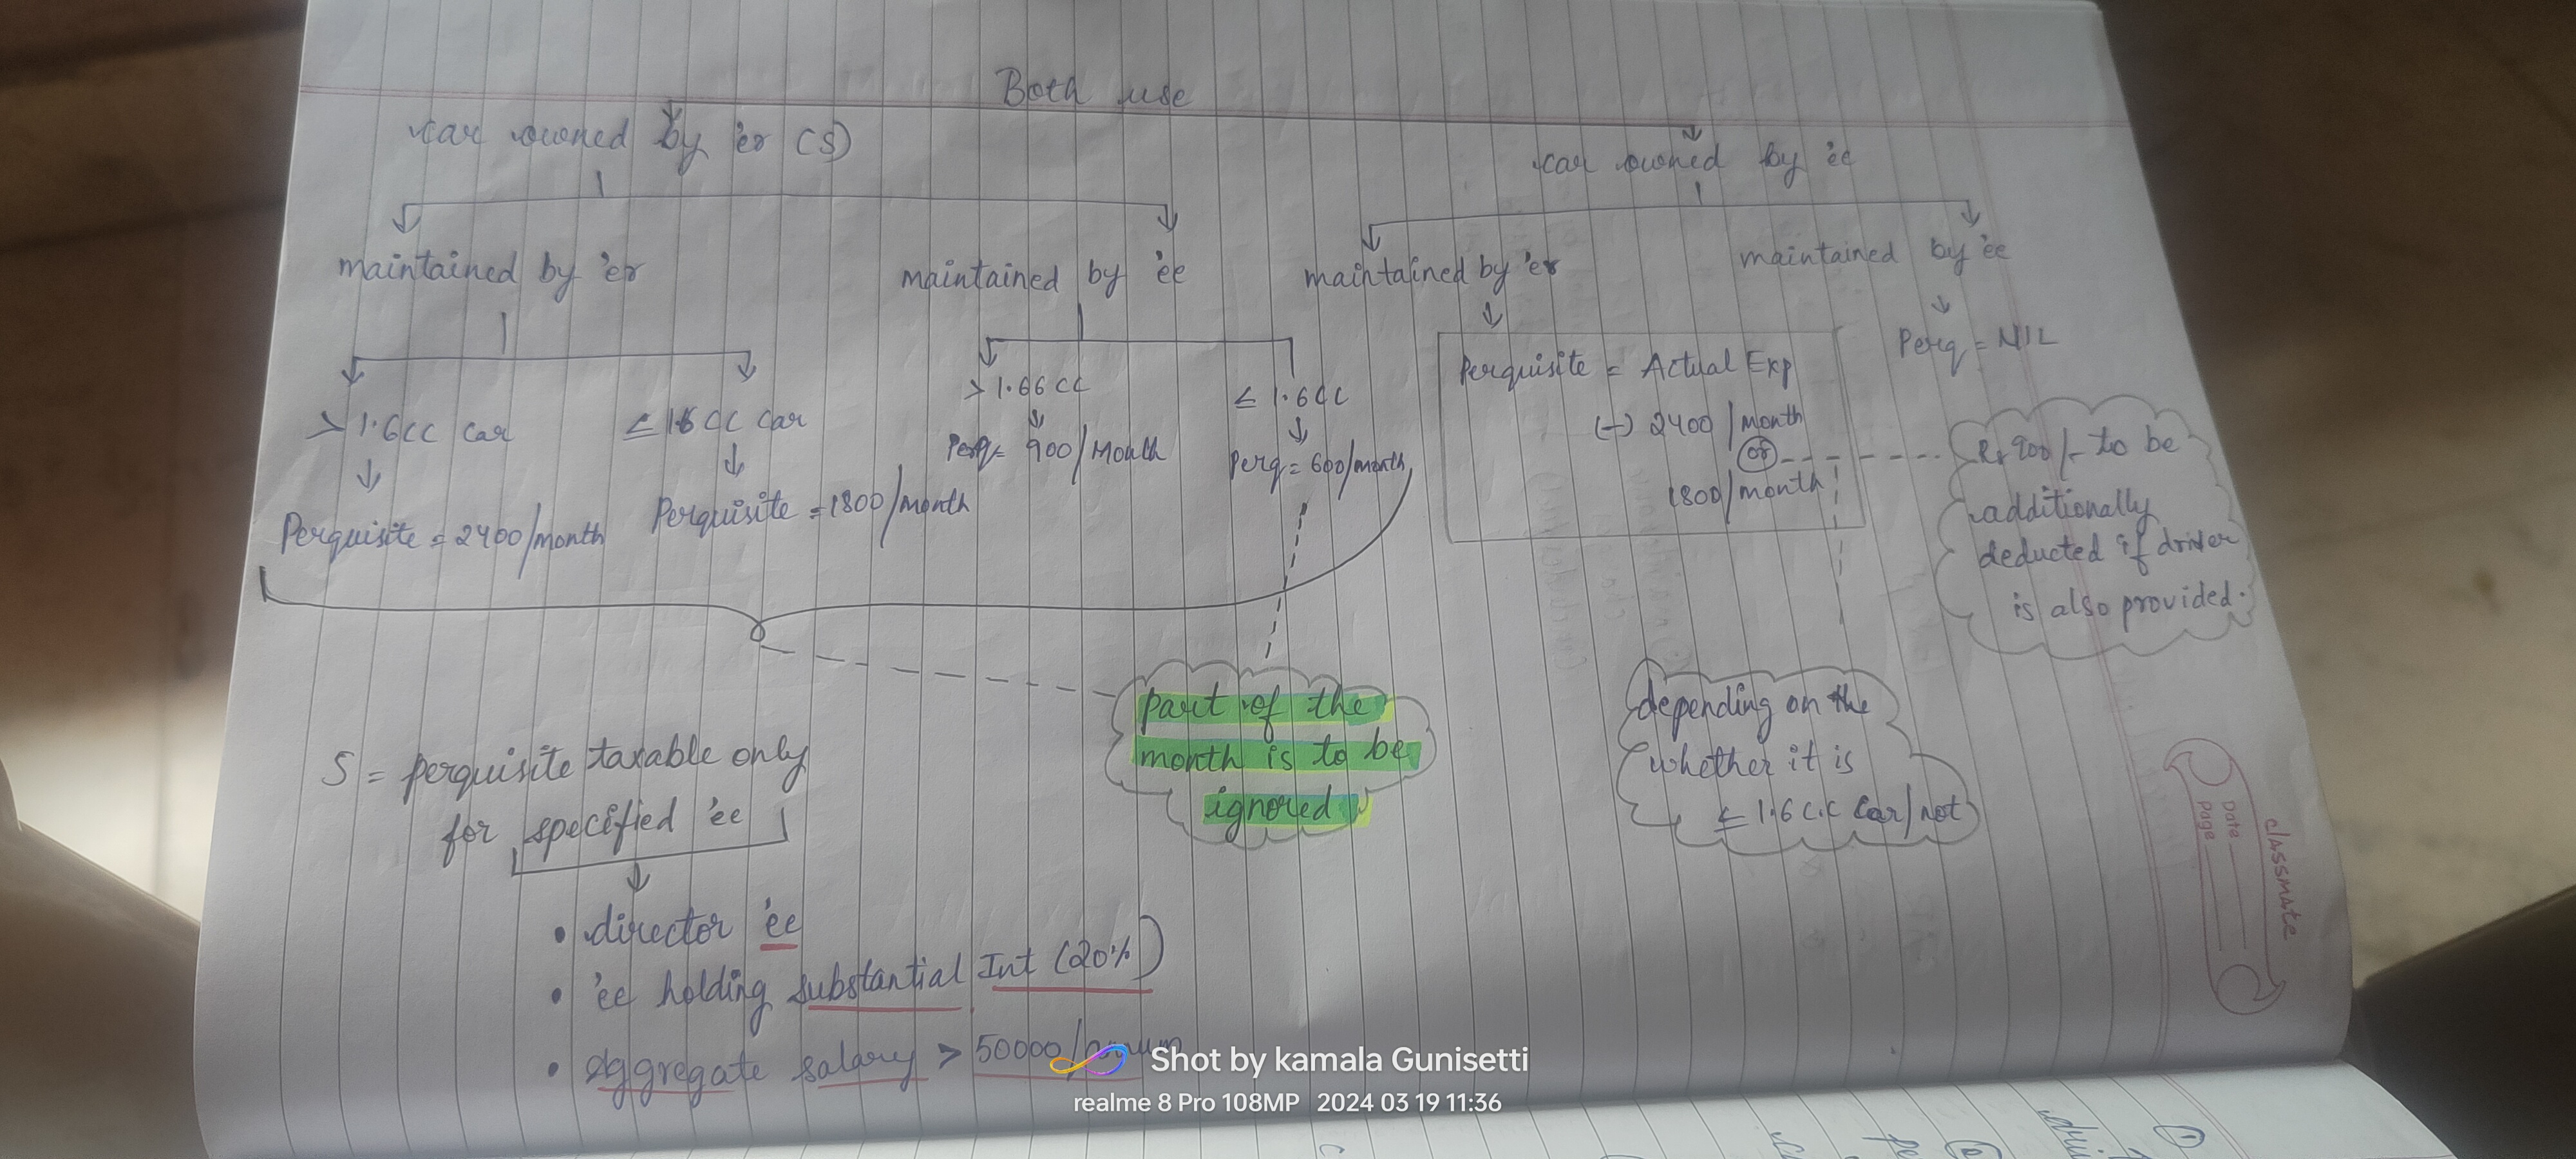 Both use
car owned by 'er (S)
car owned by 'ee
maintained by 'er
maintained by 'ee
maintained by 'er
maintained by 'ee
> 1.6CC Car
≤ 1.6 CC Car
> 1.66 CC
≤ 1.6CC
Perquisite = 2400/month
Perquisite = 1800/month
Perq = 900/Month
Perq = 600/month
Perquisite = Actual Exp
(-) 2400/month
or
1800/month
Perq = NIL
Rs 900/- to be
additionally
deducted if driver
is also provided.
part of the
month is to be
ignored
depending on the
whether it is
≤ 1.6 C.C Car/not
S = perquisite taxable only
for specified 'ee
• director 'ee
• 'ee holding substantial Int (20%)
• aggregate salary > 50000/annum
classmate
Date
Page
Shot by kamala Gunisetti
realme 8 Pro 108MP 2024 03 19 11:36